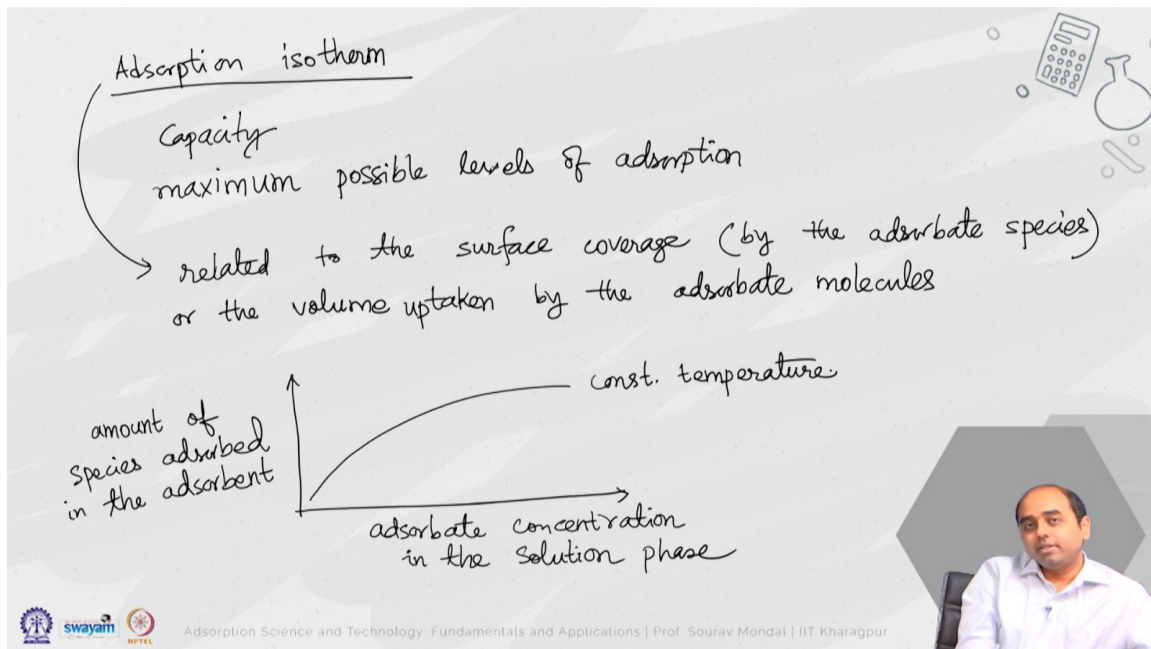 Adsorption isotherm
Capacity
maximum possible levels of adsorption
related to the surface coverage (by the adsorbate species)
or the volume uptaken by the adsorbate molecules
const. temperature
amount of
species adsorbed
in the adsorbent
adsorbate concentration
in the solution phase
swayam
NPTEL
Adsorption Science and Technology: Fundamentals and Applications | Prof. Sourav Mondal | IIT Kharagpur